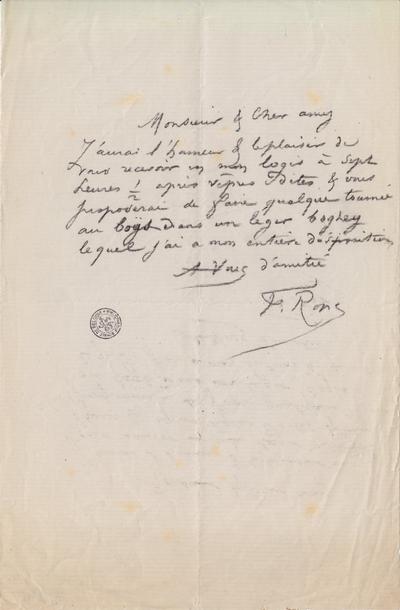 Monsieur & Cher amy
J'aurai l'honneur & le plaisir de
vous recevoir en mon logis à Sept
heures 1/2 après vêpres Dites & vous
proposerai de faire quelque tournée
au dans un léger boghey
lequel j'ai a mon entière disposition
A Vous d'amitié
F. Rops